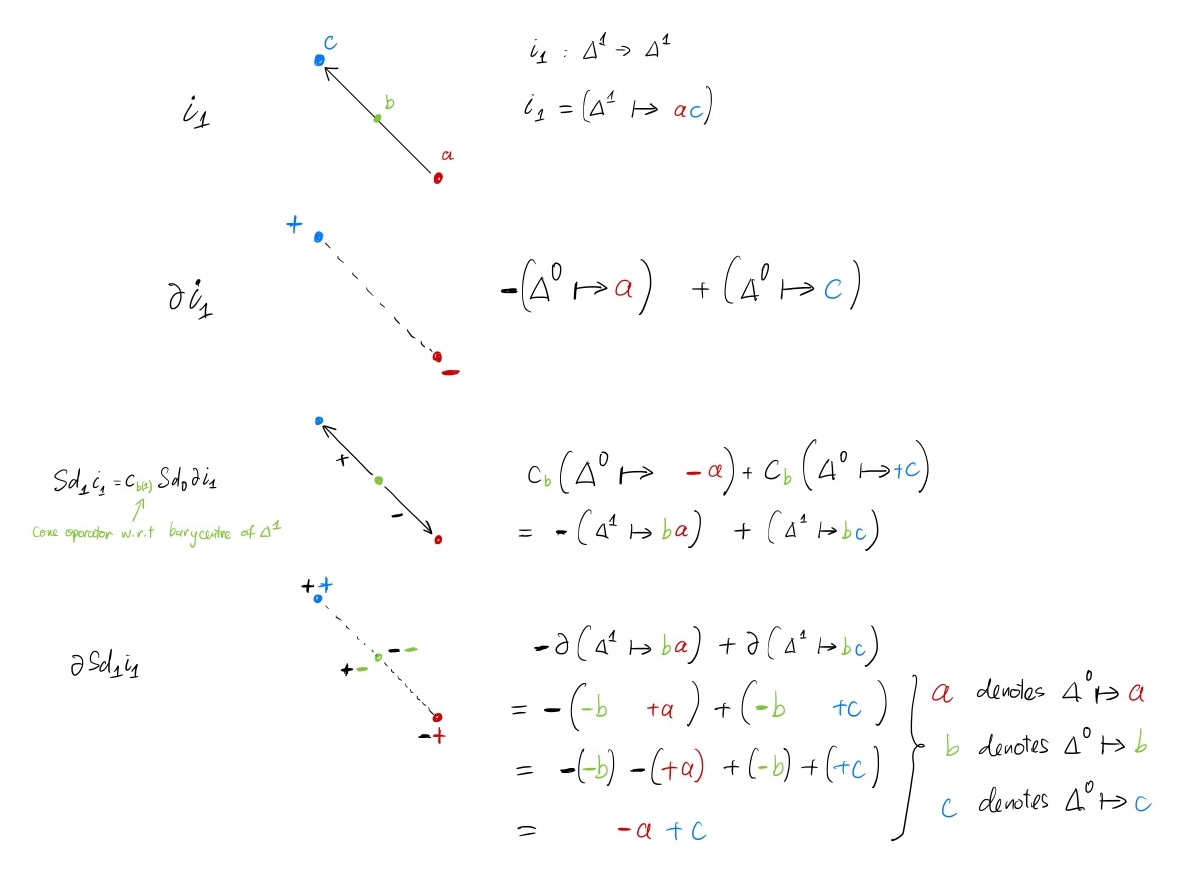 c
i₁ : Δ¹ → Δ¹
i₁
b
i₁ = (Δ¹ ↦ ac)
a
+
∂i₁
-(Δ⁰ ↦ a) + (Δ⁰ ↦ c)
-
Sd₁i₁ = C_b(1) Sd₀∂i₁
cone operator w.r.t barycentre of Δ¹
+
-
C_b(Δ⁰ ↦ -a) + C_b(Δ⁰ ↦ +c)
= -(Δ¹ ↦ ba) + (Δ¹ ↦ bc)
++
--
+-
-+
∂Sd₁i₁
-∂(Δ¹ ↦ ba) + ∂(Δ¹ ↦ bc)
= -(-b +a) + (-b +c)
= -(-b) -(+a) +(-b) +(+c)
= -a +c
a denotes Δ⁰ ↦ a
b denotes Δ⁰ ↦ b
c denotes Δ⁰ ↦ c